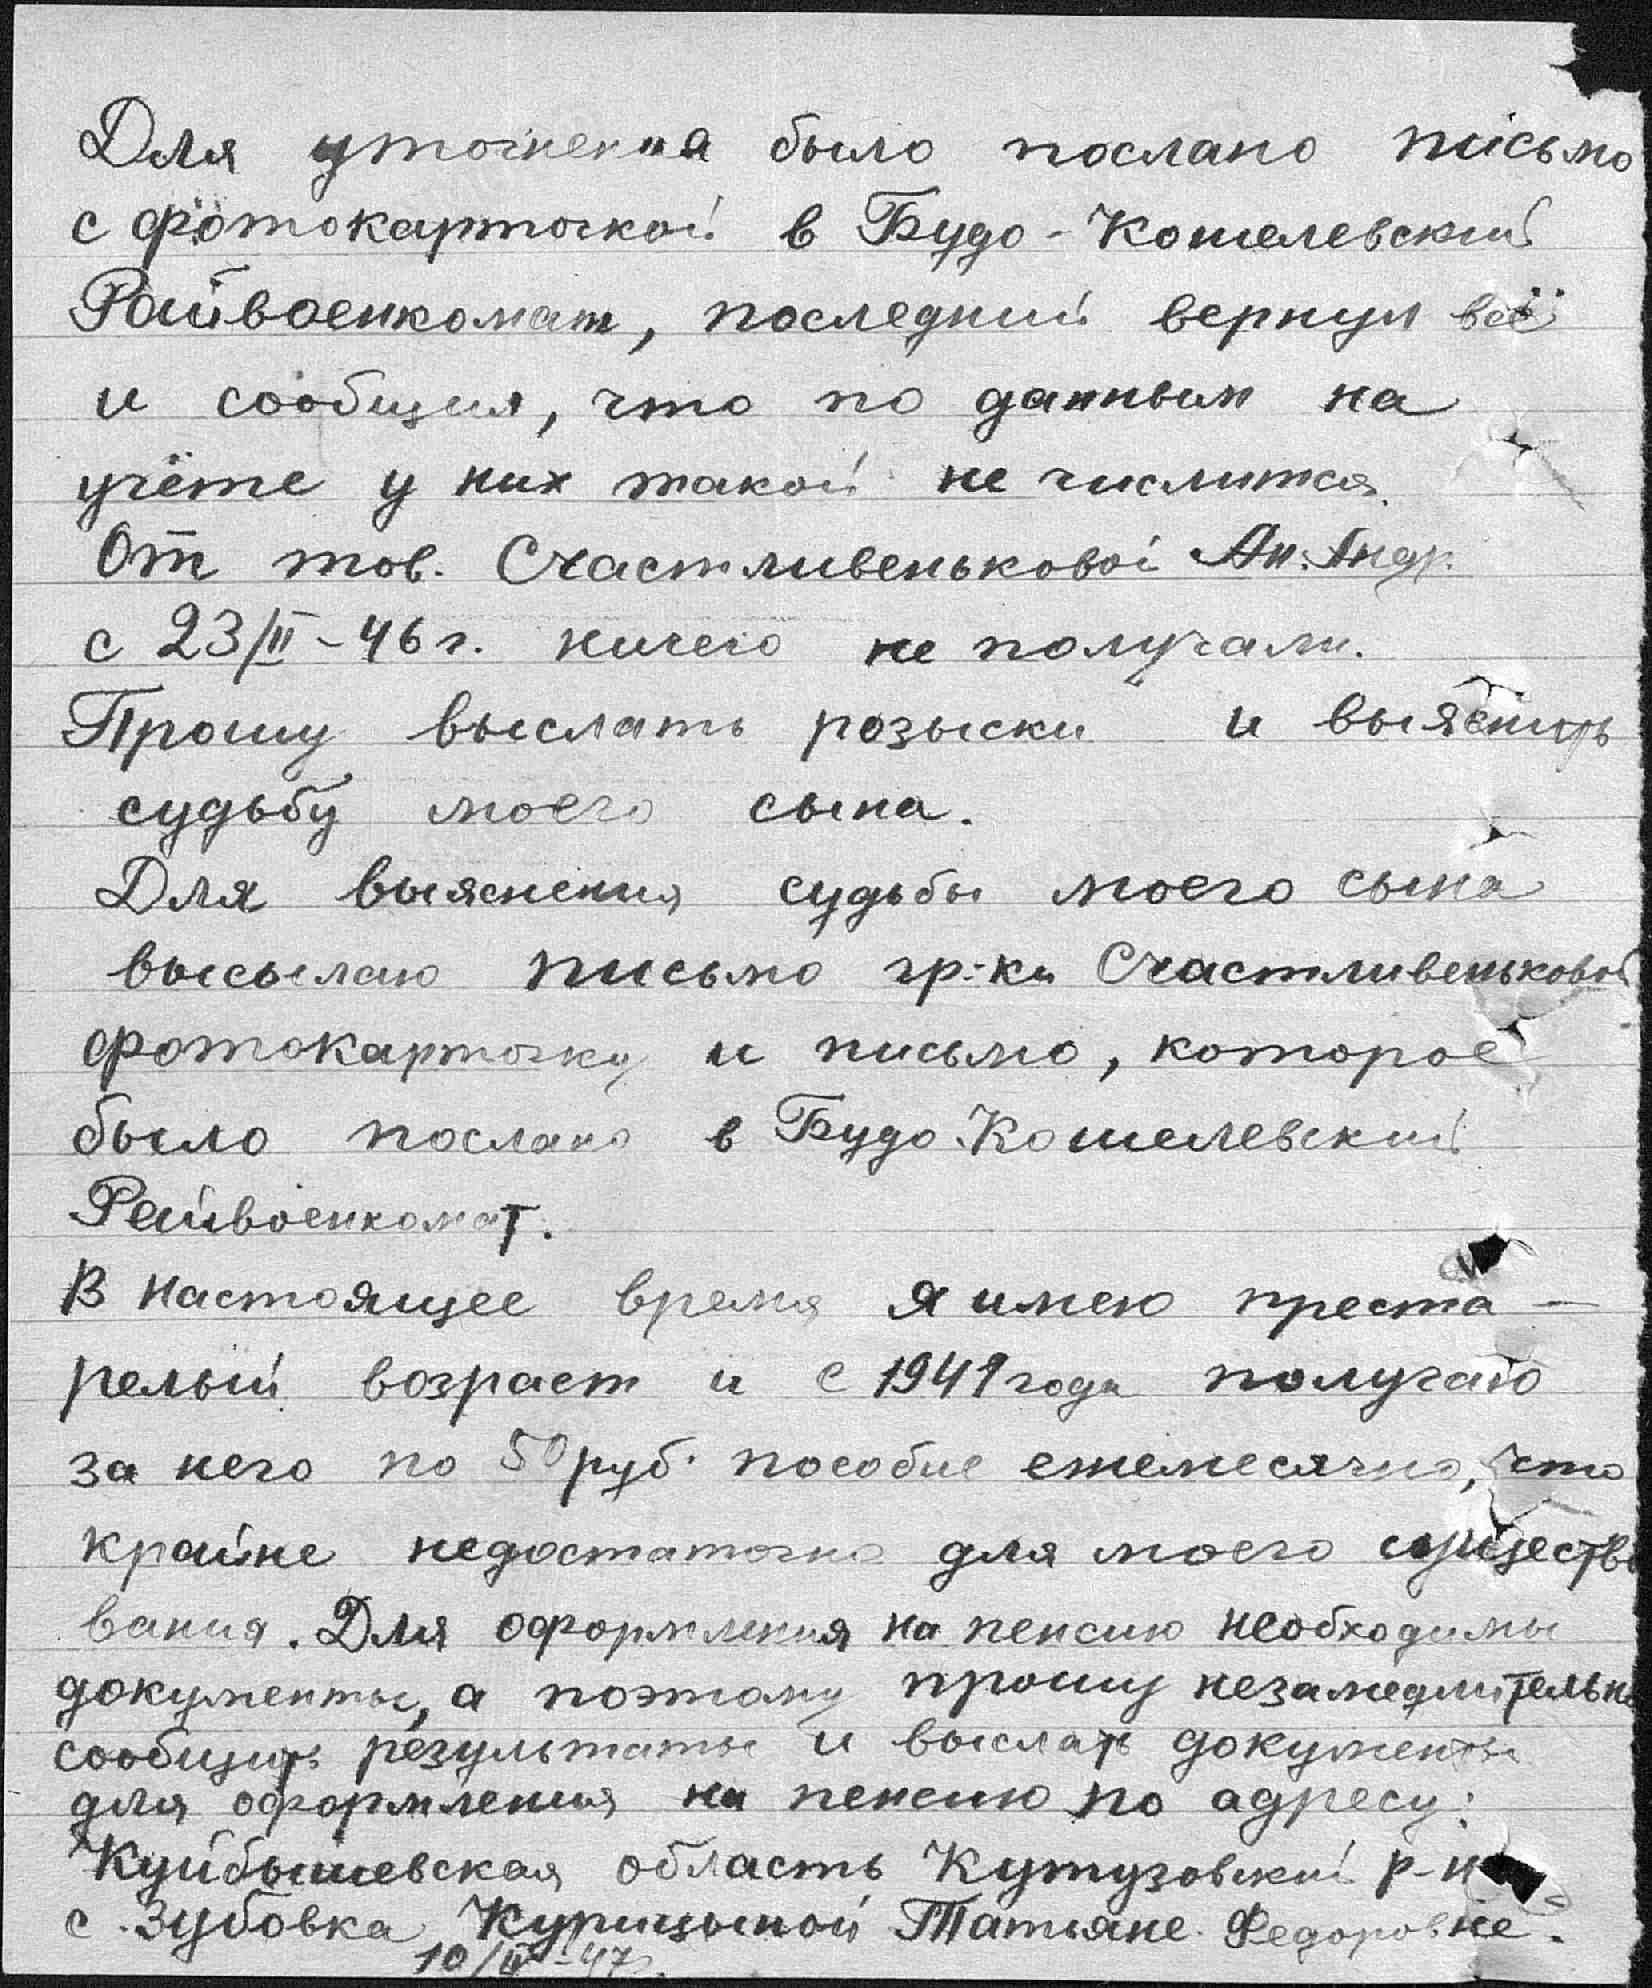 Для уточнения было послано письмо
с фотокарточкой в Будо-Кошелевский
Райвоенкомат, последний вернул всё
и сообщил, что по данным на
учёте у них такой не числится.
От тов. Счастливеньковой Ан. Андр.
с 23/II-46 г. ничего не получали.
Прошу выслать розыски и выяснить
судьбу моего сына.
Для выяснения судьбы моего сына
высылаю письмо гр-ки Счастливеньковой
фотокарточку и письмо, которое
было послано в Будо-Кошелевский
Райвоенкомат.
В настоящее время я имею преста-
релый возраст и с 1941 года получаю
за него по 50 руб. пособие ежемесячно, что
крайне недостаточно для моего существо
вания. Для оформления на пенсию необходимы
документы, а поэтому прошу незамедлительно
сообщить результаты и выслать документы
для оформления на пенсию по адресу:
Куйбышевская область Кутузовский р-н
с. Зубовка Курицыной Татьяне Федоровне.
10/ -47г.